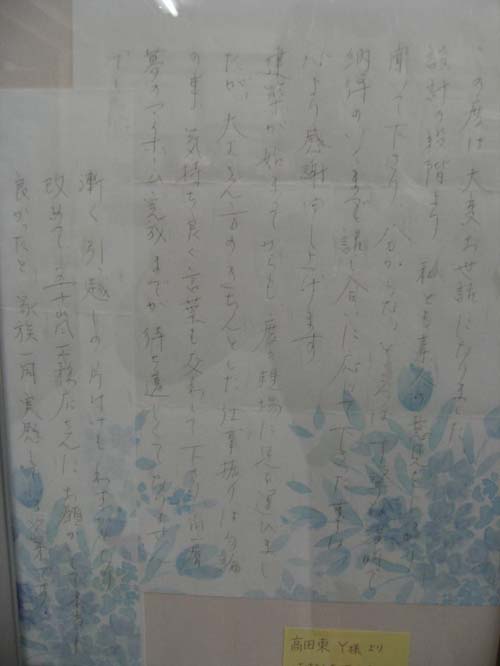 この度は大変お世話になりました
設計の段階より 私ども素人の意見をしっかり
聞いて下さり 分からないところは 丁寧に
納得のいくまで話し合いに応じて下さった事は
心より感謝申し上げます
建築が始まってからも 度々現場に足を運びまし
たが、大工さん方のきちんとした仕事振りは勿論
の事 気持ち良く言葉も交わして下さり
夢のマイホーム完成までが待ち遠しくて
でした
漸く引っ越しの片付けも
改めて 工務店さんにお願いして
良かったと 家族一同実感している次第です。
高田東 Y様より